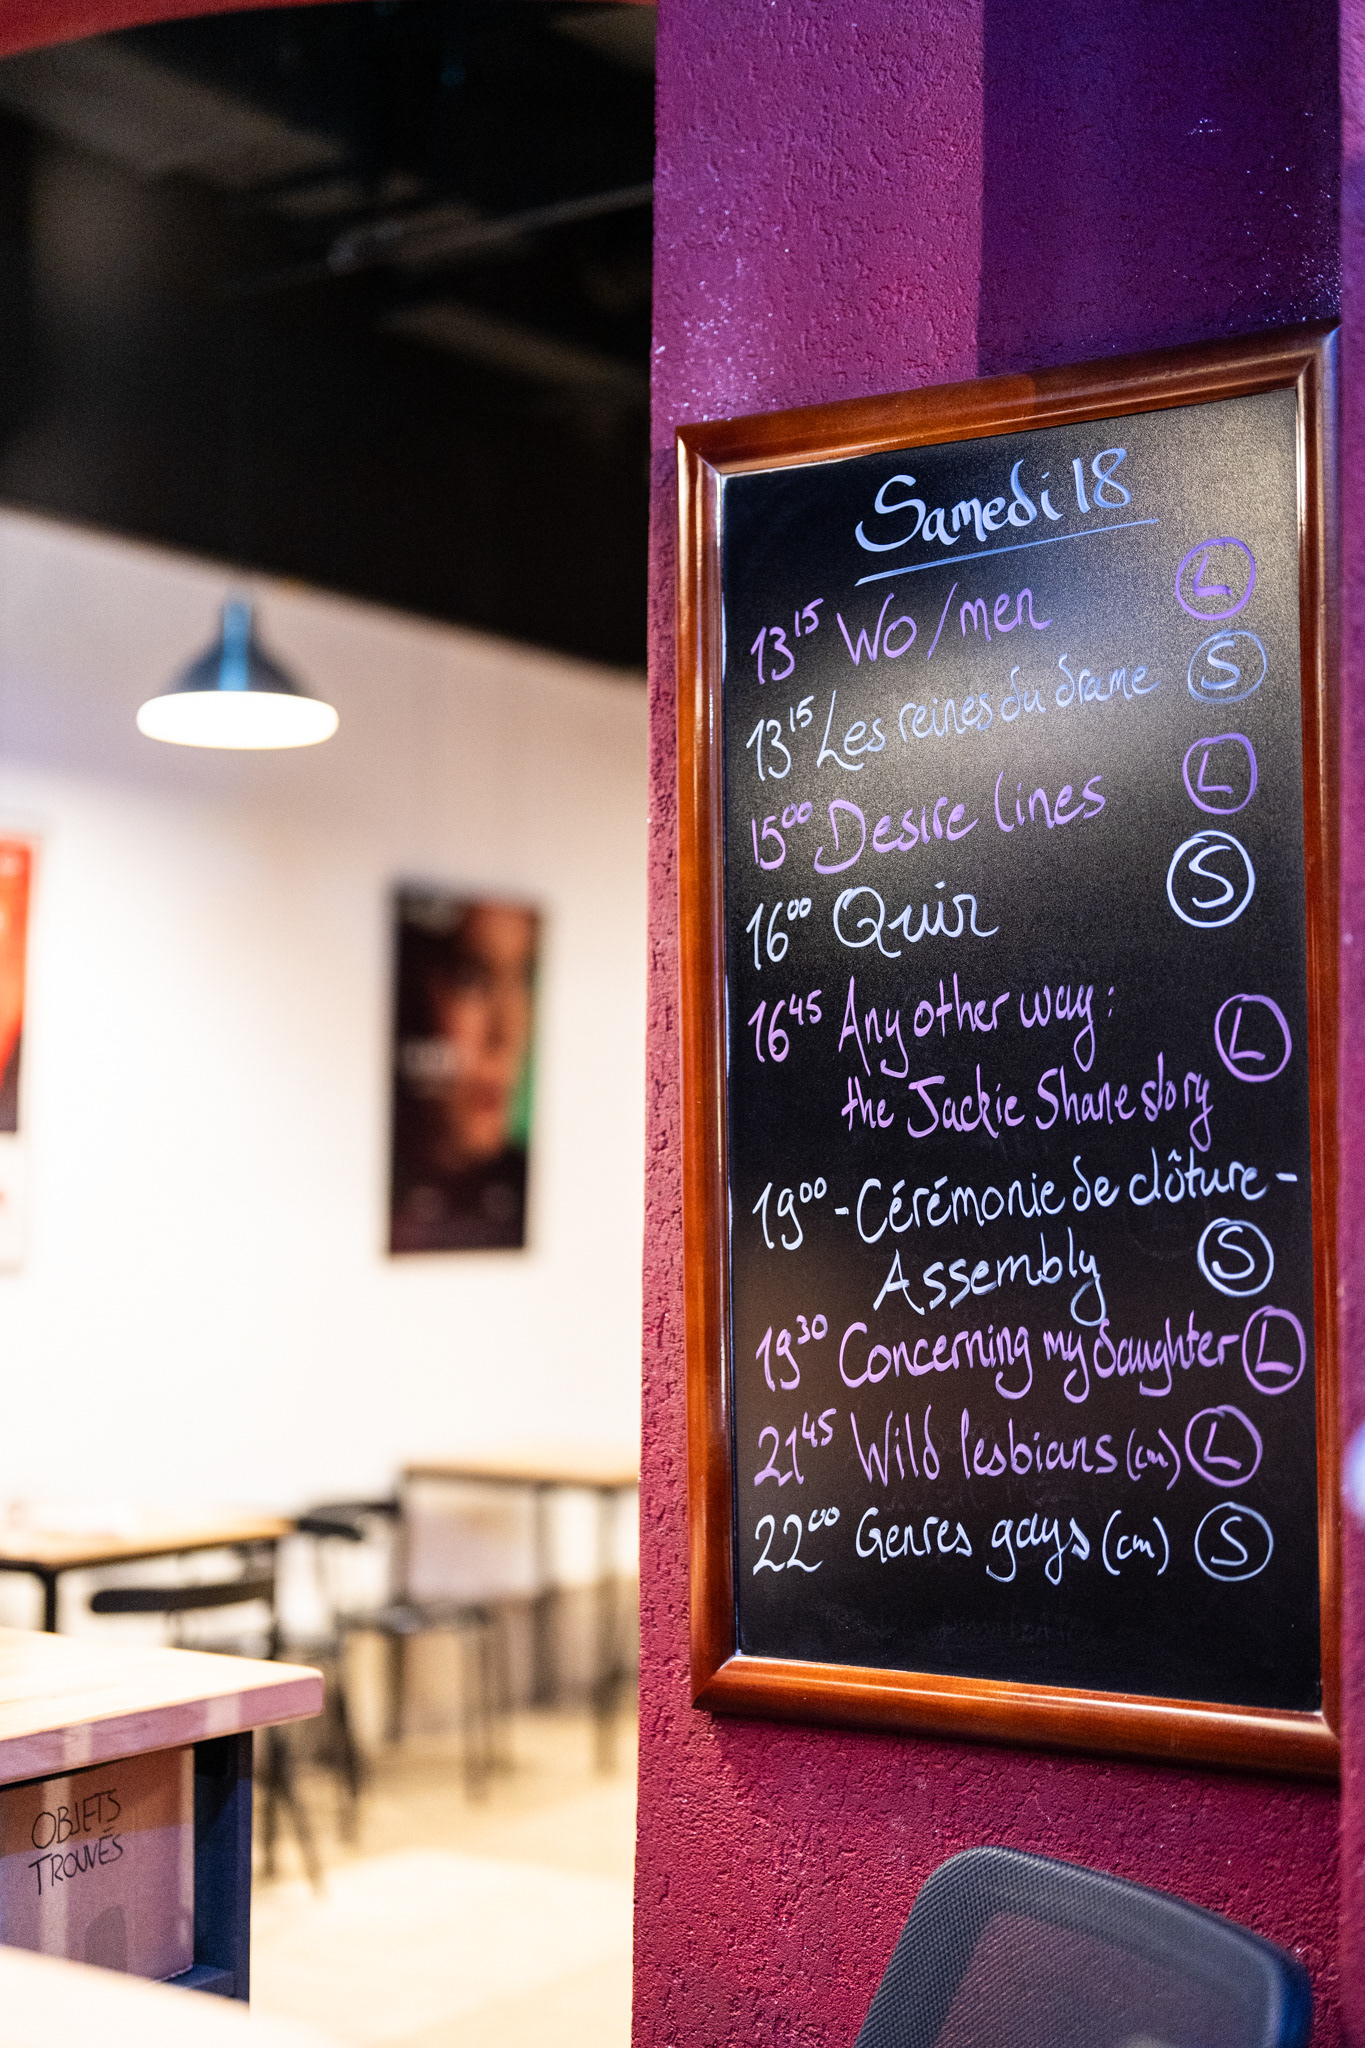 Samedi 18
13¹⁵ Wo/men L
13¹⁵ Les reines du drame S
15⁰⁰ Desire lines L
16⁰⁰ Quir S
16⁴⁵ Any other way: L
the Jackie Shane story
19⁰⁰ - Cérémonie de clôture -
Assembly S
19³⁰ Concerning my daughter L
21⁴⁵ Wild lesbians (cm) L
22⁰⁰ Genres gays (cm) S
OBJETS
TROUVÉS